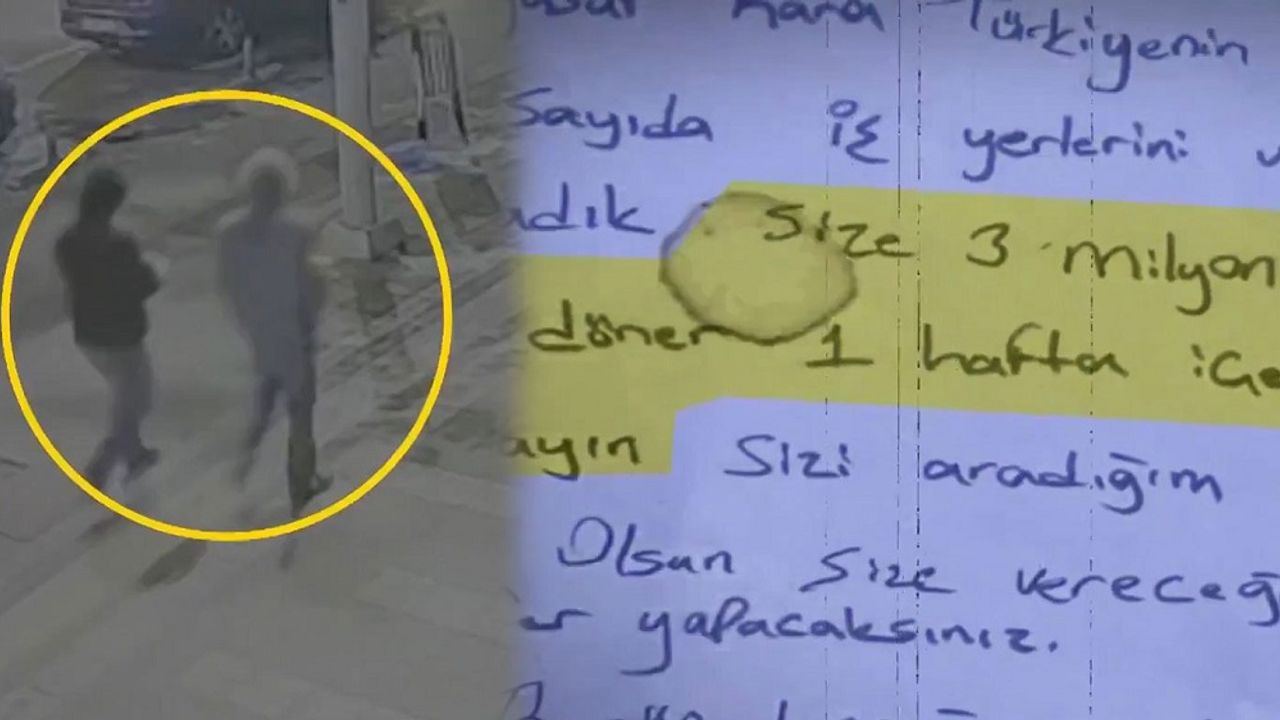 Türkiyenin
Sayıda iş yerlerini
adık Size 3 milyon
döner 1 hafta içe
ayın sizi aradığım
Olsun size vereceğ
yapacaksınız.